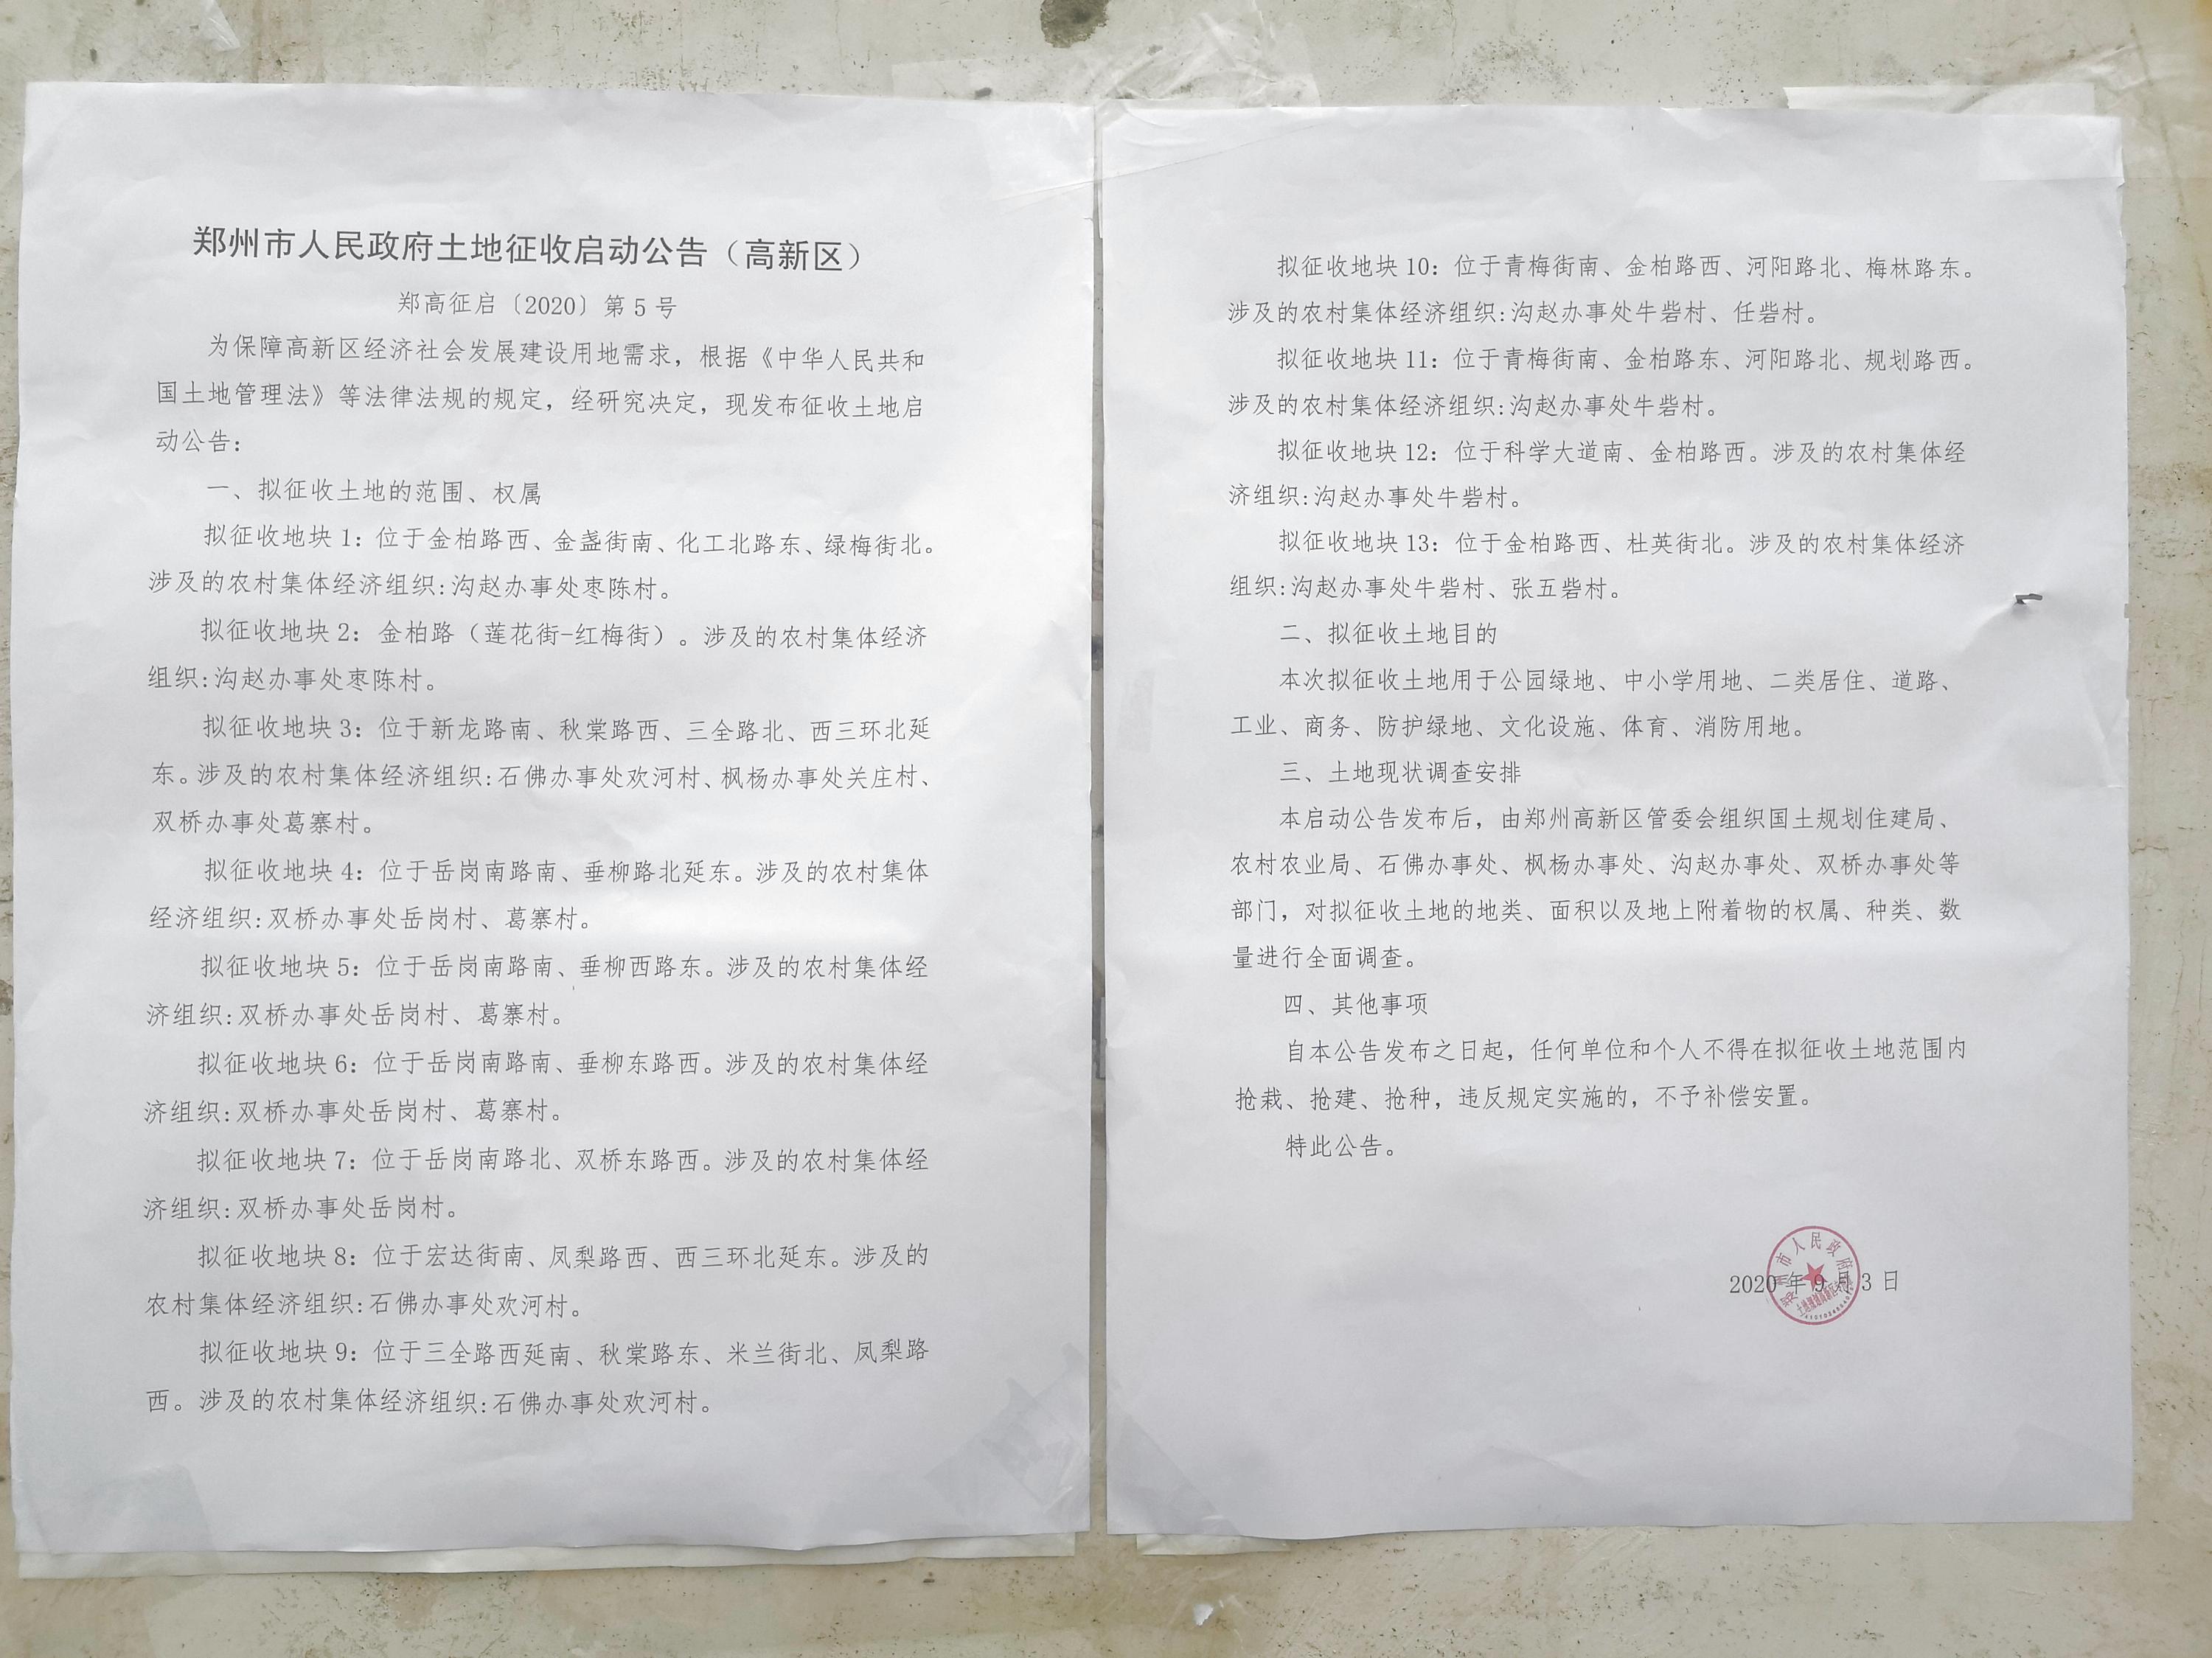 郑州市人民政府土地征收启动公告（高新区）
郑高征启〔2020〕第 5 号
为保障高新区经济社会发展建设用地需求，根据《中华人民共和
国土地管理法》等法律法规的规定，经研究决定，现发布征收土地启
动公告：
一、拟征收土地的范围、权属
拟征收地块 1：位于金柏路西、金盏街南、化工北路东、绿梅街北。
涉及的农村集体经济组织:沟赵办事处枣陈村。
拟征收地块 2：金柏路（莲花街-红梅街）。涉及的农村集体经济
组织:沟赵办事处枣陈村。
拟征收地块 3：位于新龙路南、秋棠路西、三全路北、西三环北延
东。涉及的农村集体经济组织:石佛办事处欢河村、枫杨办事处关庄村、
双桥办事处葛寨村。
拟征收地块 4：位于岳岗南路南、垂柳路北延东。涉及的农村集体
经济组织:双桥办事处岳岗村、葛寨村。
拟征收地块 5：位于岳岗南路南、垂柳西路东。涉及的农村集体经
济组织:双桥办事处岳岗村、葛寨村。
拟征收地块 6：位于岳岗南路南、垂柳东路西。涉及的农村集体经
济组织:双桥办事处岳岗村、葛寨村。
拟征收地块 7：位于岳岗南路北、双桥东路西。涉及的农村集体经
济组织:双桥办事处岳岗村。
拟征收地块 8：位于宏达街南、凤梨路西、西三环北延东。涉及的
农村集体经济组织:石佛办事处欢河村。
拟征收地块 9：位于三全路西延南、秋棠路东、米兰街北、凤梨路
西。涉及的农村集体经济组织:石佛办事处欢河村。
拟征收地块 10：位于青梅街南、金柏路西、河阳路北、梅林路东。
涉及的农村集体经济组织:沟赵办事处牛砦村、任砦村。
拟征收地块 11：位于青梅街南、金柏路东、河阳路北、规划路西。
涉及的农村集体经济组织:沟赵办事处牛砦村。
拟征收地块 12：位于科学大道南、金柏路西。涉及的农村集体经
济组织:沟赵办事处牛砦村。
拟征收地块 13：位于金柏路西、杜英街北。涉及的农村集体经济
组织:沟赵办事处牛砦村、张五砦村。
二、拟征收土地目的
本次拟征收土地用于公园绿地、中小学用地、二类居住、道路、
工业、商务、防护绿地、文化设施、体育、消防用地。
三、土地现状调查安排
本启动公告发布后，由郑州高新区管委会组织国土规划住建局、
农村农业局、石佛办事处、枫杨办事处、沟赵办事处、双桥办事处等
部门，对拟征收土地的地类、面积以及地上附着物的权属、种类、数
量进行全面调查。
四、其他事项
自本公告发布之日起，任何单位和个人不得在拟征收土地范围内
抢栽、抢建、抢种，违反规定实施的，不予补偿安置。
特此公告。
2020 年 9 月 3 日
郑州市人民政府